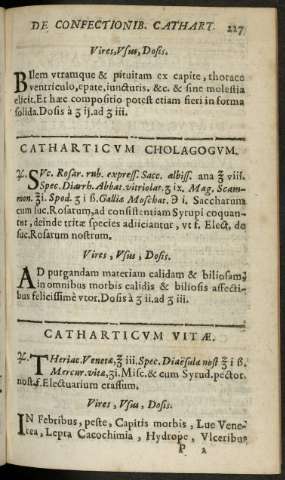 DE CONFECTIONIB. CATHART. 227
Vires, Vsus, Dosis.
BIlem vtramque & pituitam ex capite, thorace
ventriculo, epate, iunctutis. &c. & sine molestia
elicit. Et hæc compositio potest etiam fieri in forma
solida. Dosis à ʒ ij. ad ʒ iii.
CATHARTICVM CHOLAGOGVM.
♃. SVc. Rosar. rub. express. Sacc. albiss. ana ℥ viii.
Spec. Diarrh. Abbat. vitriolat. ʒ ix. Mag. Scam-
mon. ℥i. Spod. ʒ i ß. Galliæ Moschat. ℈ i. Saccharum
cum suc. Rosarum, ad consistentiam Syrupi coquan-
tur, deinde tritæ species adiiciantur, vt f. Elect. de
suc. Rosarum nostrum.
Vires, Vsus, Dosis.
AD purgandam materiam calidam & biliosam,
in omnibus morbis calidis & biliosis affecti-
bus felicissimè vtor. Dosis à ʒ ii. ad ʒ iii.
CATHARTICVM VITÆ.
♃. THeriac. Venetæ, ℥ iii. Spec. Diaësulæ nost ℥ i ß.
Mercur. vitæ, ʒi. Misc. & cum Syrud. pectot.
nost. f. Electuarium crassum.
Vires, Vsus, Dosis.
IN Febribus, peste, Capitis morbis, Lue Vene-
rea, Lepra Cacochimia, Hydrope, Vlceribus
P 2